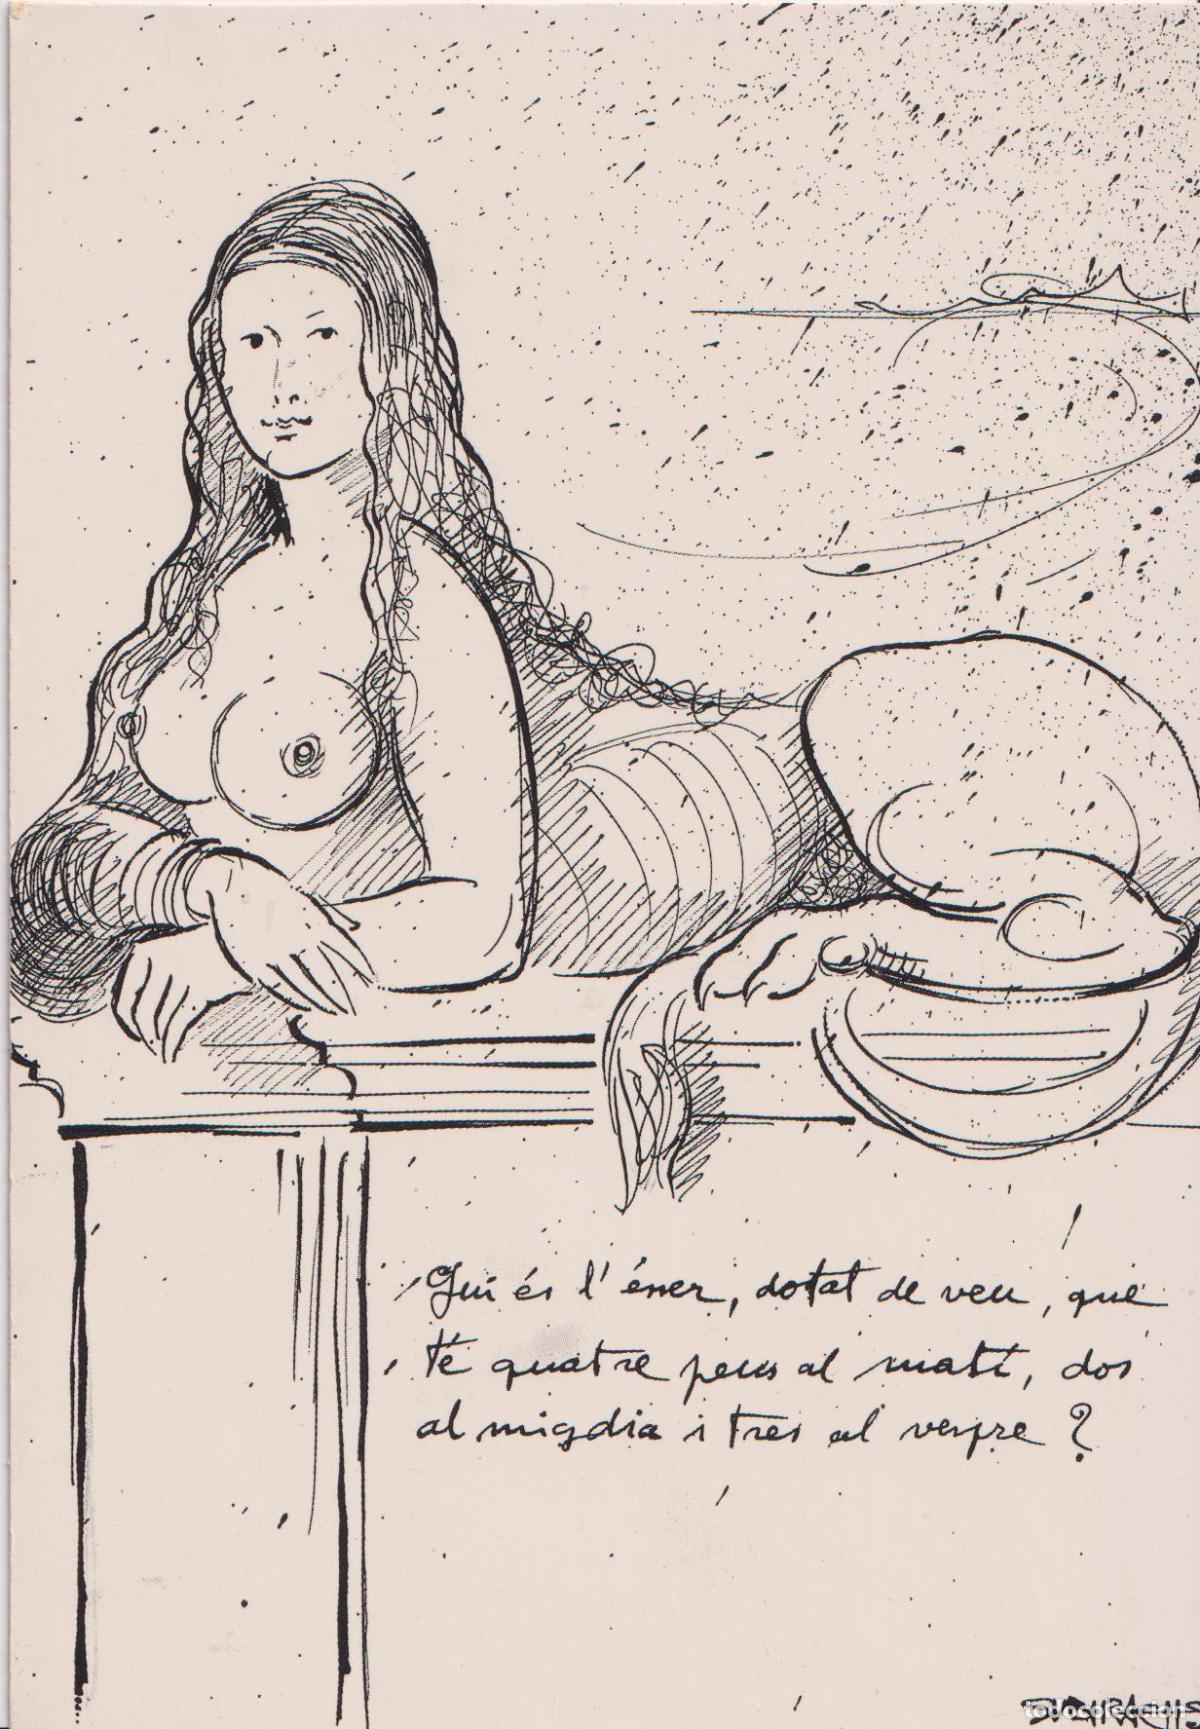 Qui és l'ésser, dotat de veu, que
té quatre peus al matí, dos
al migdia i tres al vespre?
SUBIRACHS
todocoleccion